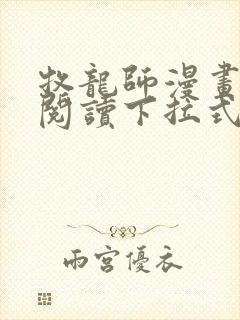 牧龍師漫畫
閱讀下拉式
雨宮優衣